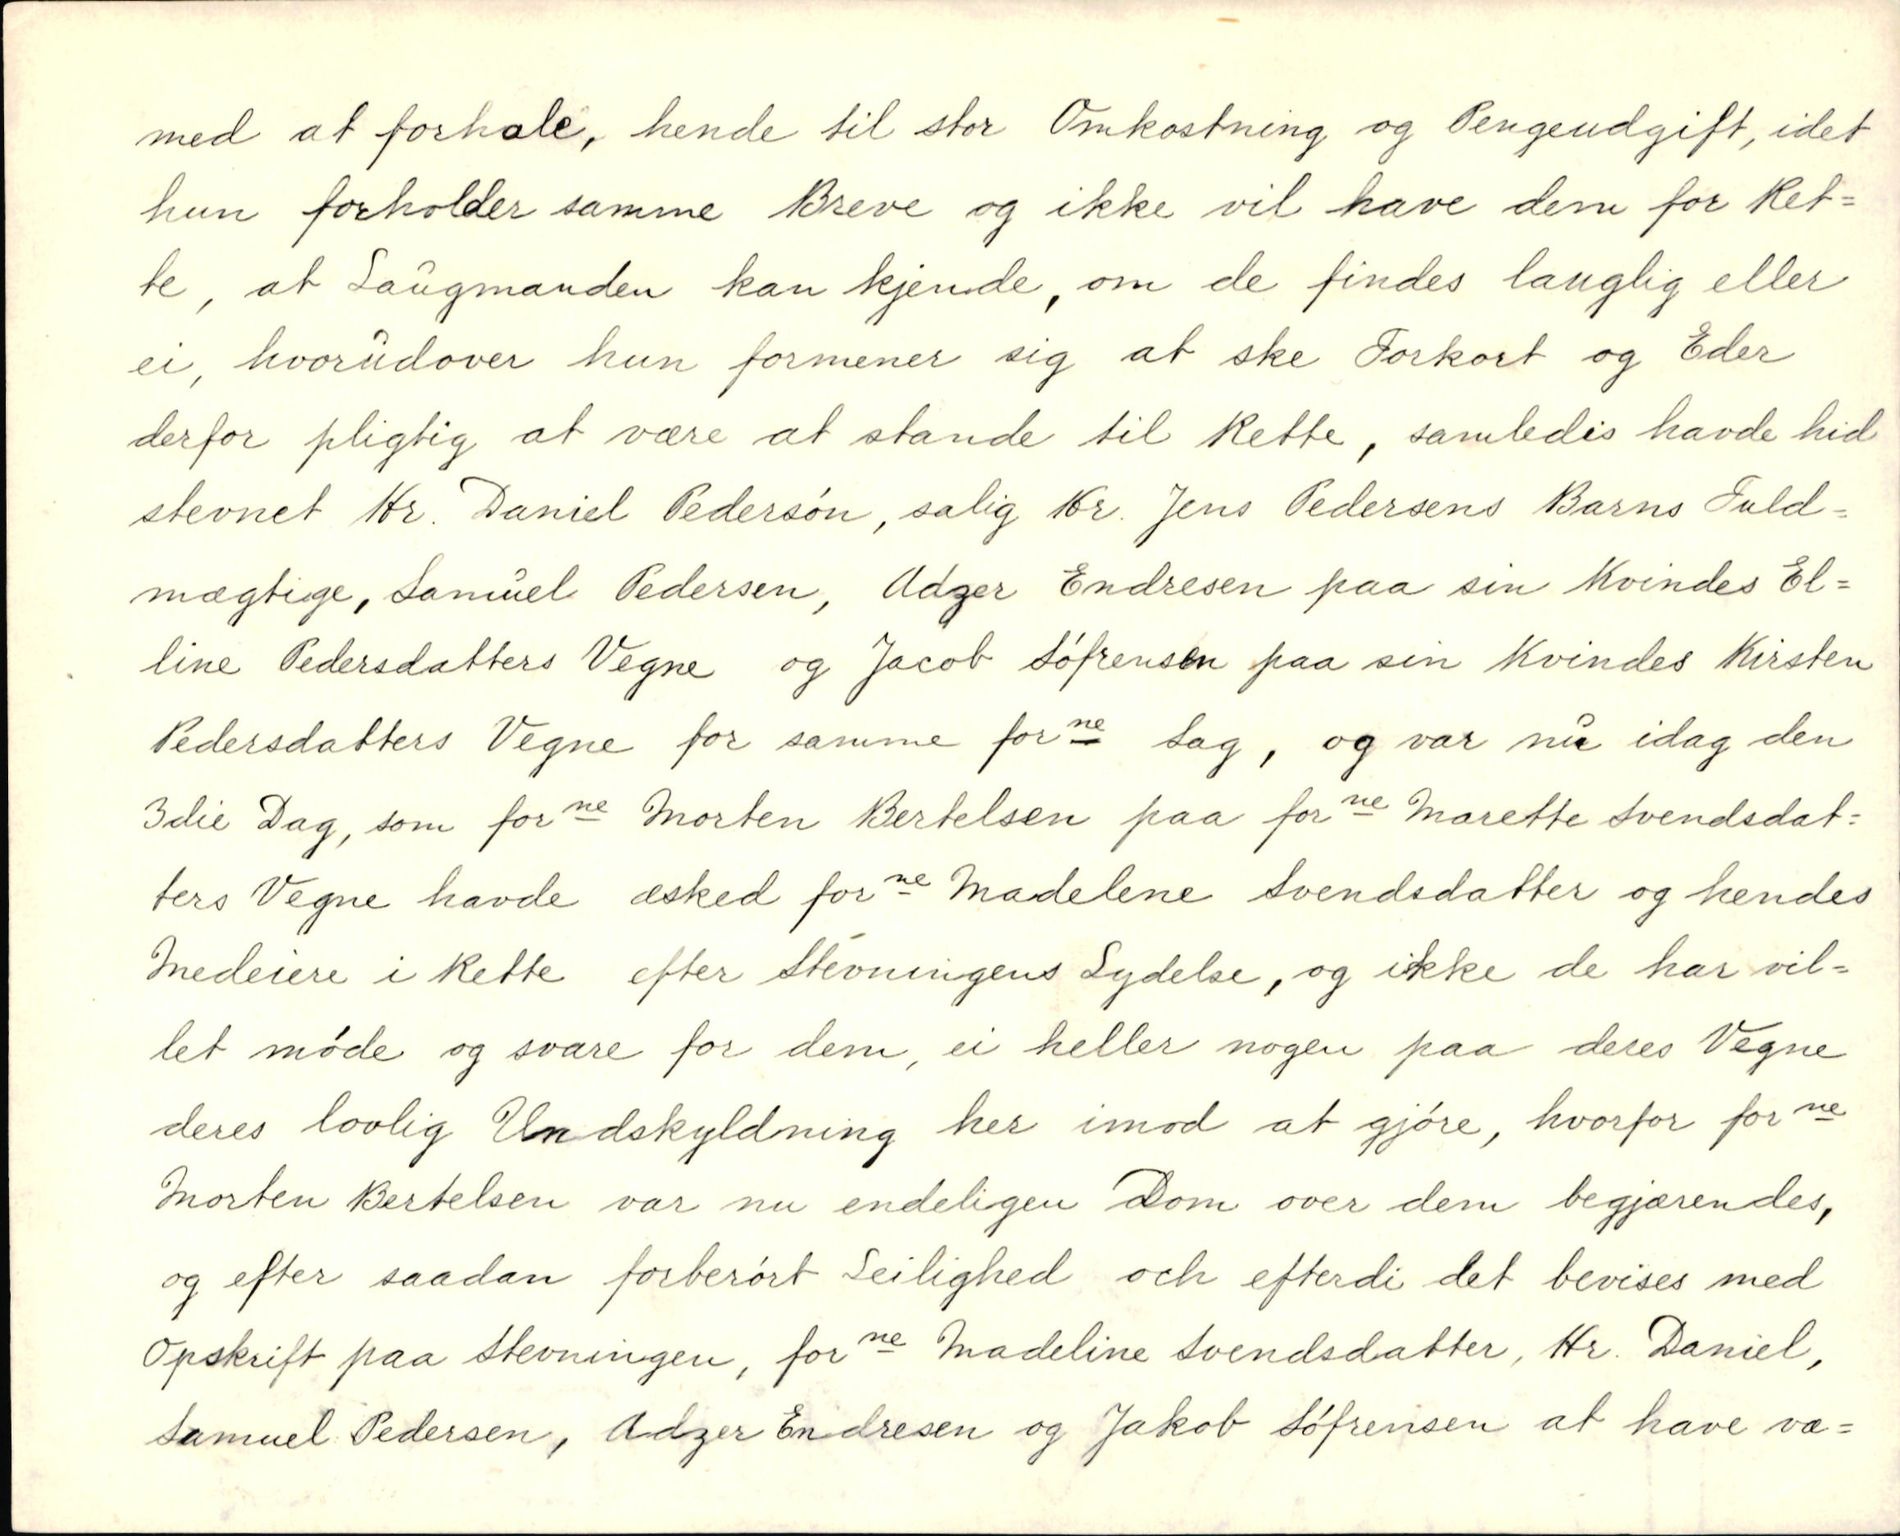 med at forhale, hende til stor Omkostning og Pengeudgift, idet
hun forholder samme Breve og ikke vil have dem for Ret=
te, at Laŭgmanden kan kjende, om de findes lauglig eller
ei, hvorŭdover hun formener sig at ske Forkort og Eder
derfor pligtig at være at stande til Rette, samledis havde hid
stevnet Hr. Daniel Pedersón, salig Hr. Jens Pedersens Barns Fuld=
mægtige, Samŭel Pedersen, Adzer Endresen paa sin Kvindes El=
line Pedersdatters Vegne og Jacob Sófrensen paa sin Kvindes Kirsten
Pedersdatters Vegne for samme forne Sag, og var nŭ idag den
3die Dag, som forne Morten Bertelsen paa forne Marette Svendsdat=
ters Vegne havde æsked forne Madelene Svendsdatter og hendes
Medeiere i Rette efter Stevningens Lydelse, og ikke de har vil=
let móde og svare for dem, ei heller nogen paa deres Vegne
deres lovlig Undskyldning her imod at gjóre, hvorfor forne
Morten Bertelsen var nu endeligen Dom over dem begjærendes,
og efter saadan forberórt Leilighed och efterdi det bevises med
Opskrift paa Stevningen, forne Madeline Svendsdatter, Hr. Daniel,
Samuel Pedersen, Adzer Endresen og Jakob Sófrensen at have væ=